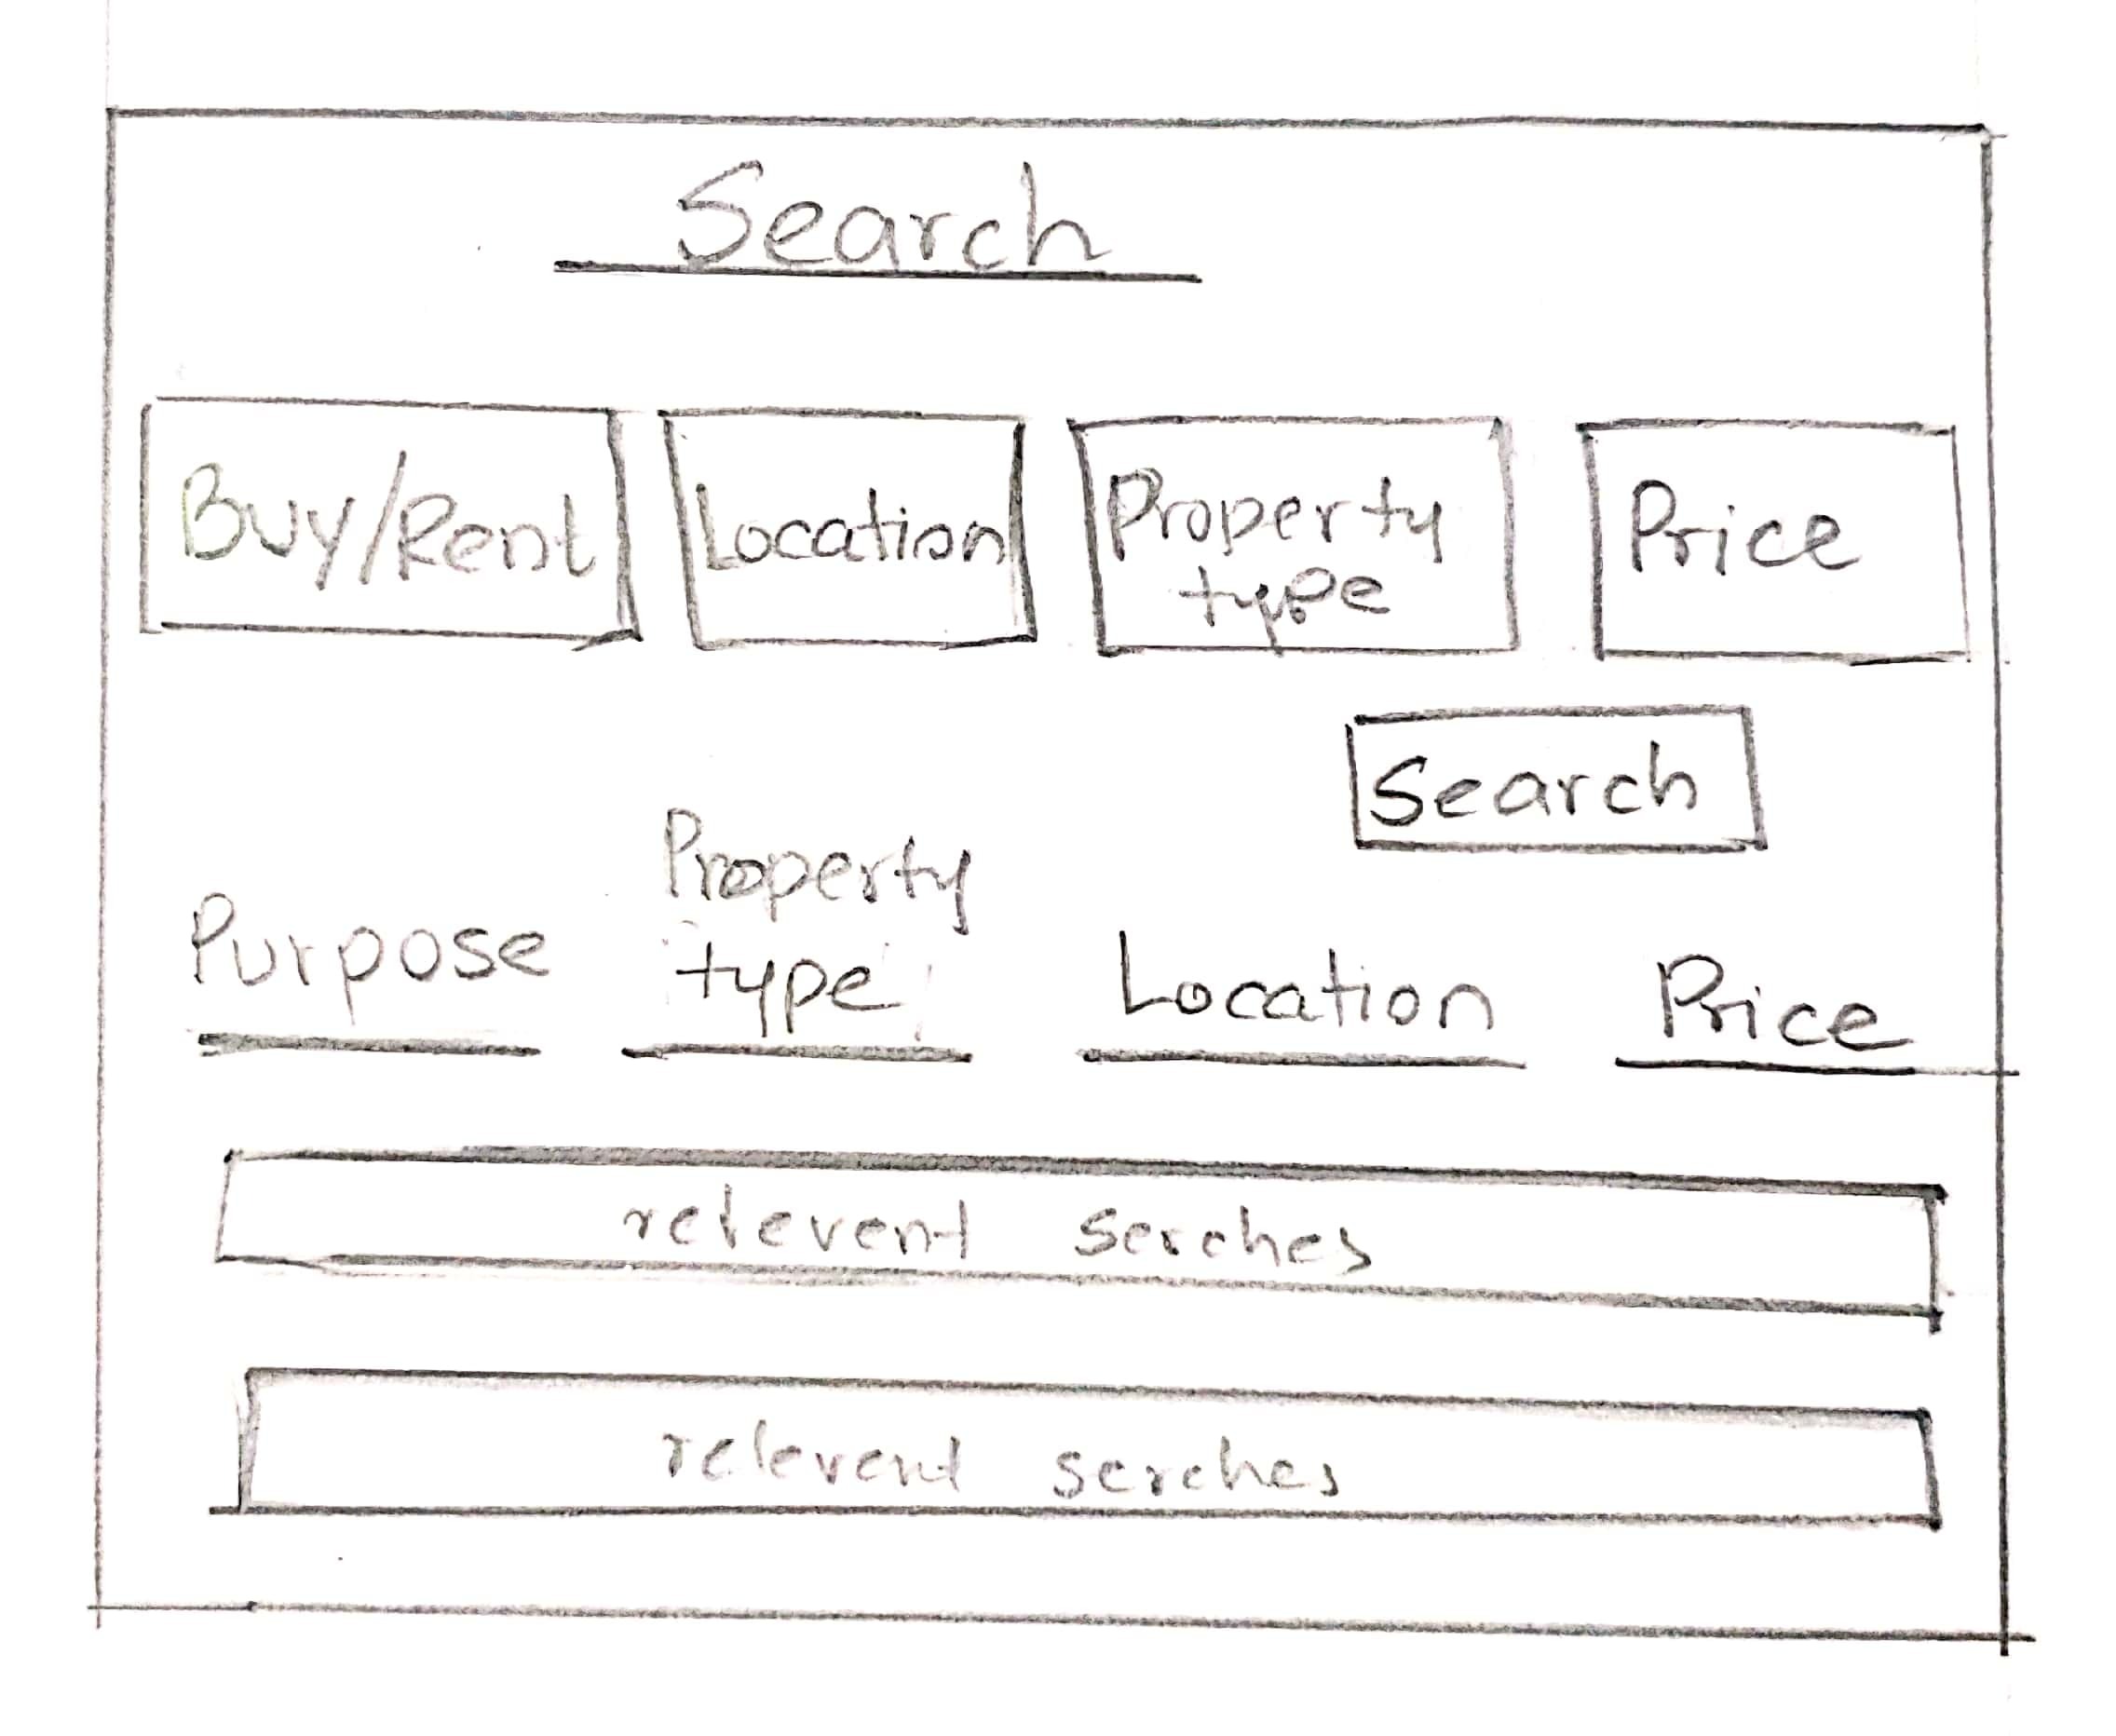 Search
Buy/Rent
Location
Property
type
Price
Search
Purpose
Property
type
Location
Price
relevent serches
relevent serches